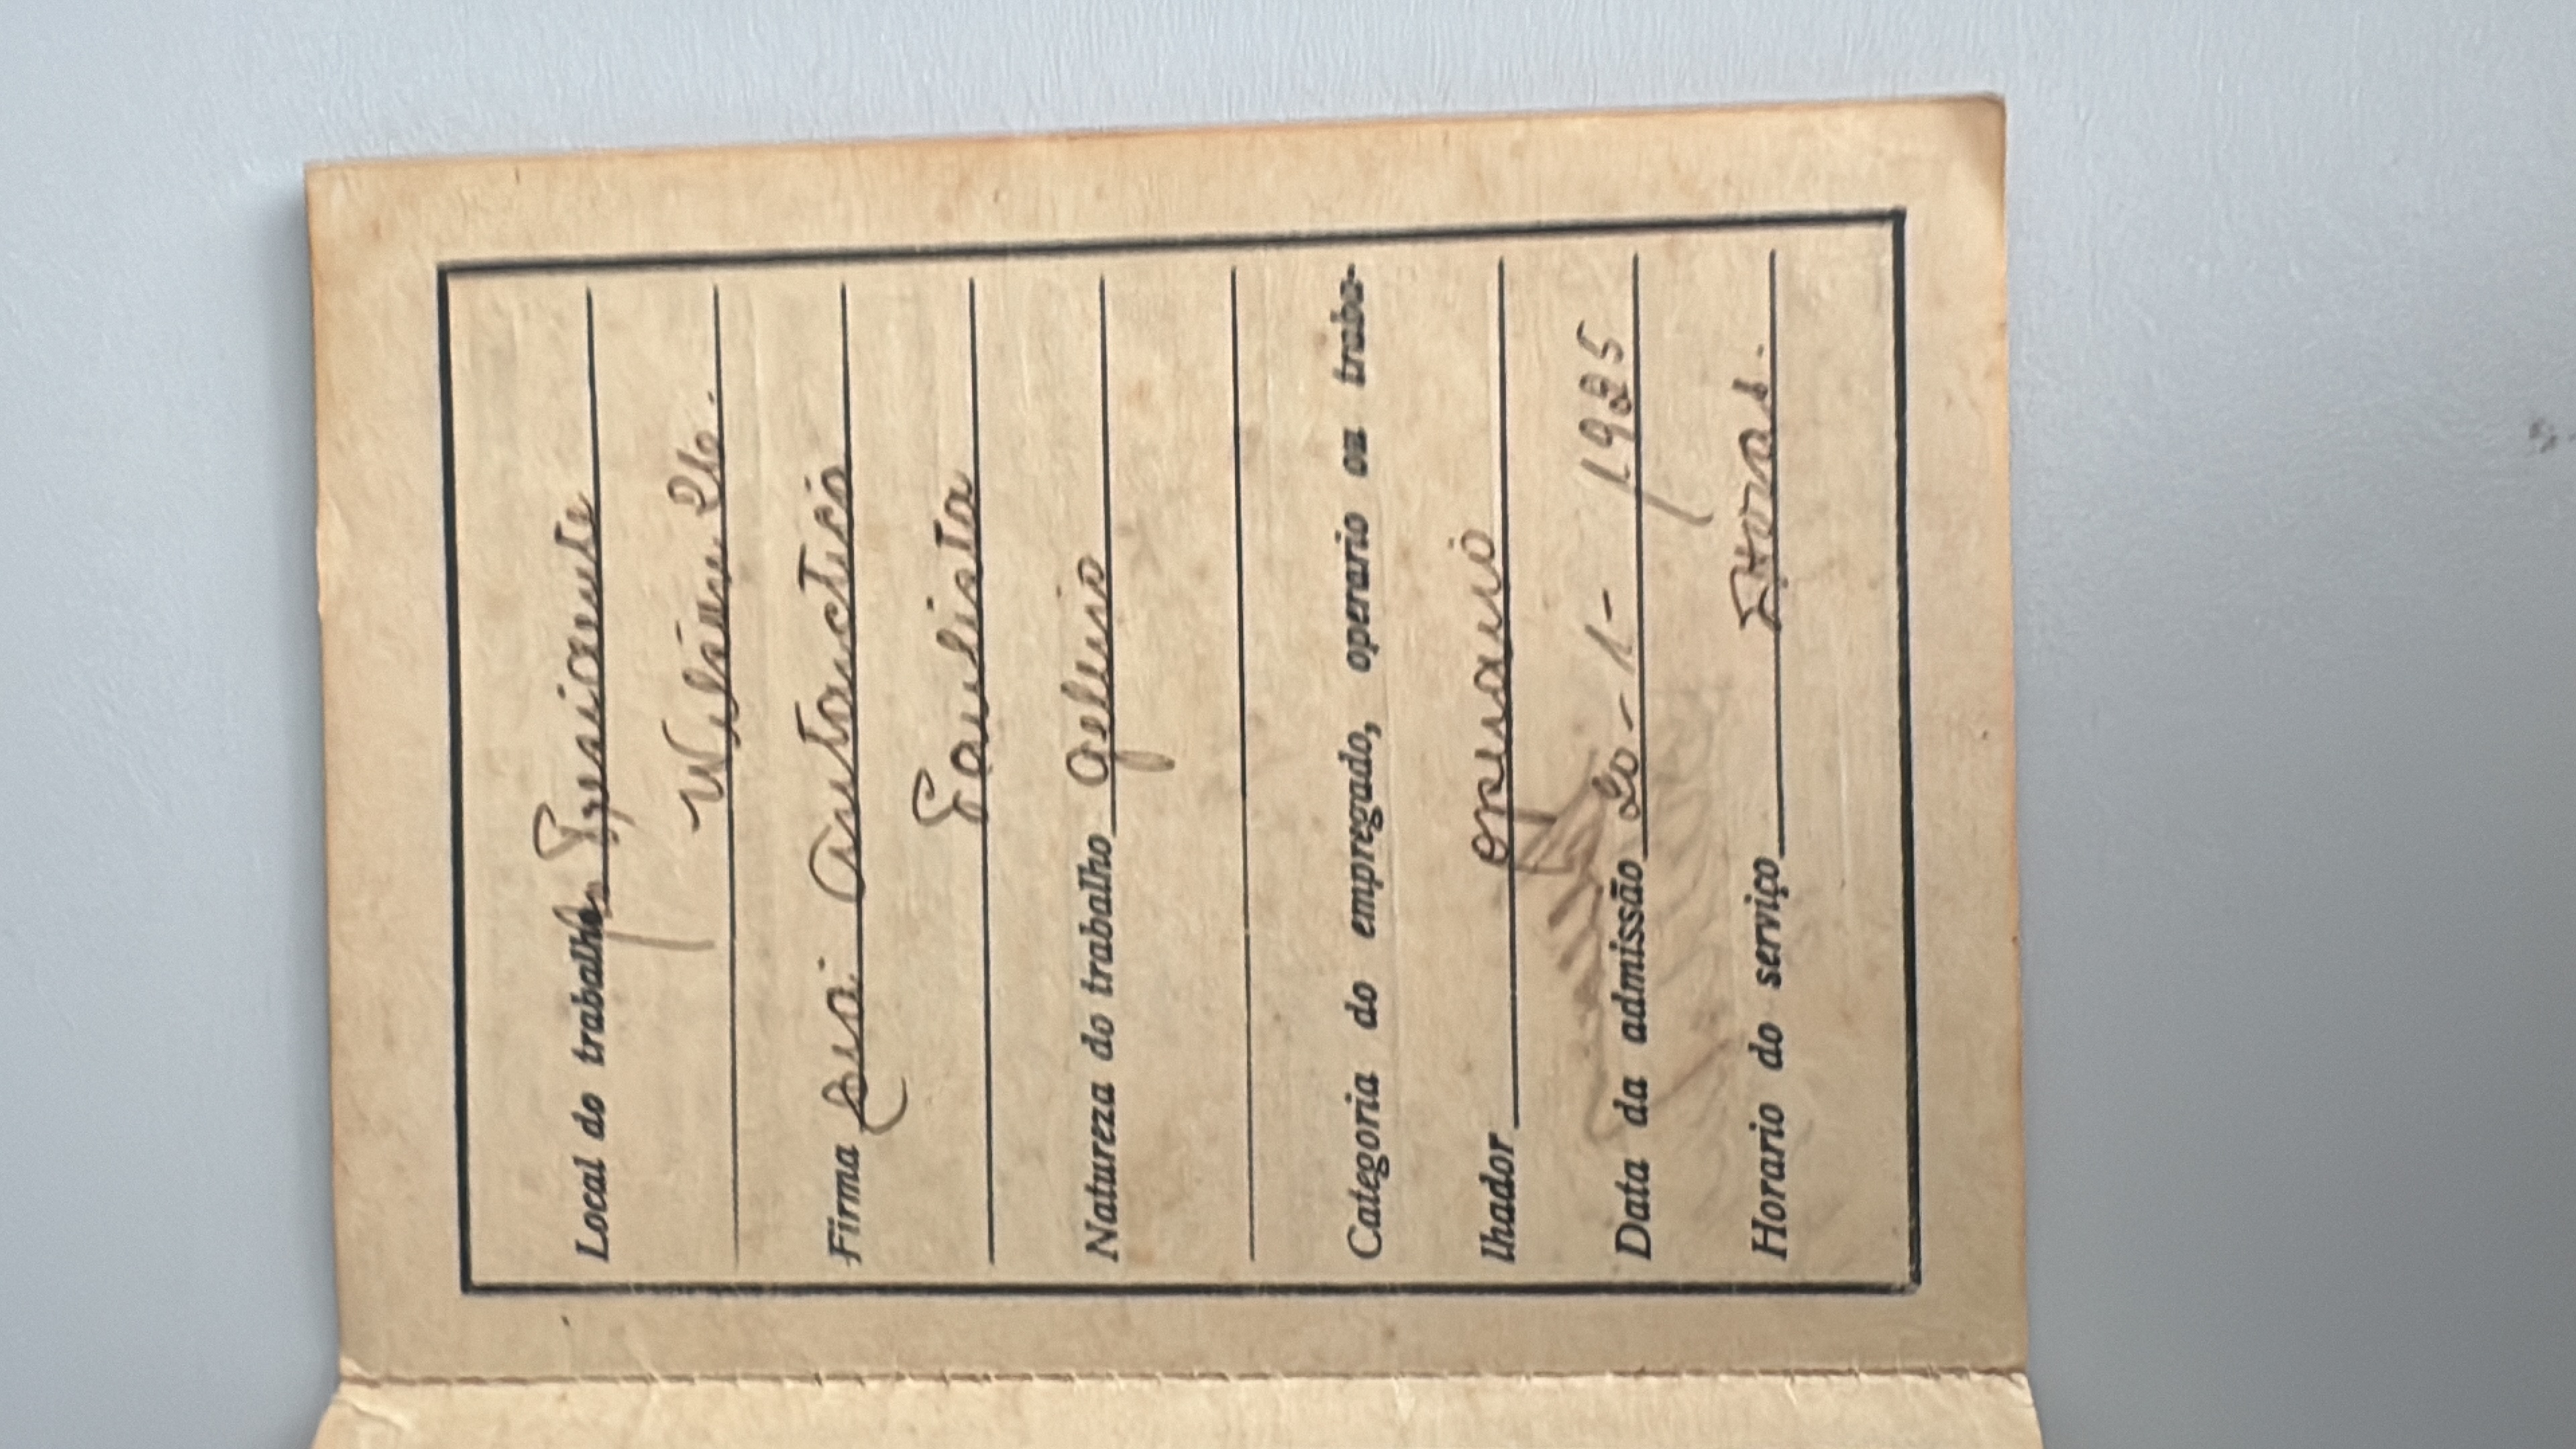 Local do trabalho Presidente
Firma Antarctica
Paulista
Natureza do trabalho
Categoria do empregado, operario ou traba-
lhador operario
Data da admissão 20 - 1 - 1925
Horario do serviço Horas.